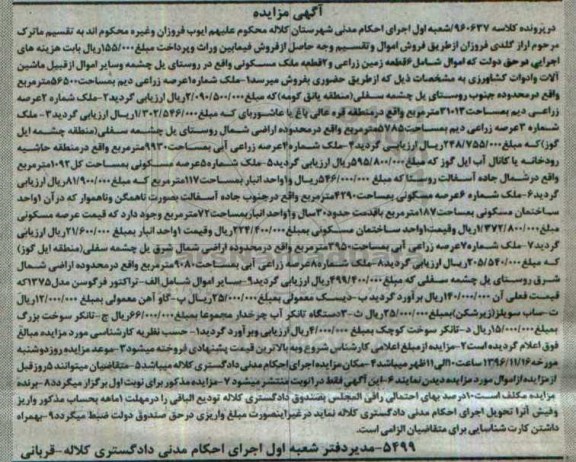 آگهی مزایده
درپرونده کلاسه ۹۶۰۶۳۷/شعبه اول اجرای احکام مدنی شهرستان کلاله محکوم علیهم ایوب فروزان وغیره محکوم اند به تقسیم ماترک
مرحوم اراز گلدی فروزان ازطریق فروش اموال وتقسیم وجه حاصل ازفروش فیمابین وراث وپرداخت مبلغ۱۵۵/۰۰۰ریال بابت هزینه های
اجرایی درحق دولت که اموال شامل۶قطعه زمین زراعی و۲قطعه ملک مسکونی واقع در روستای یل چشمه وسایر اموال ازقبیل ماشین
آلات وادوات کشاورزی به مشخصات ذیل که ازطریق حضوری بفروش میرسد۱-ملک شماره۱عرصه زراعی دیم بمساحت۵۶۵۰۰مترمربع
واقع درمحدوده جنوب روستای یل چشمه سفلی(منطقه یانق گومه)که مبلغ۲/۰۹۰/۵۰۰/۰۰۰ریال ارزیابی گردید۲-ملک شماره ۲عرصه
زراعی دیم بمساحت۳۱۰۱۳مترمربع واقع درمنطقه قره عالی باغ یا عاشوربای کـه مبلغ۱/۳۰۲/۵۴۶/۰۰۰ریـال ارزیابی گردید۳- ملک
شماره ۳عرصه زراعی دیم بمساحت۵۷۸۵مترمربع واقع درمحدوده اراضی شمال روستای یل چشمه سفلی(منطقه چشمه ایل
گوز)کـه مبلغ۲۴۸/۷۵۵/۰۰۰ریـال ارزیـابی گردید۴-ملک شماره۴عرصه زراعی آبی بمساحت۹۹۳۰مترمربع واقع درمنطقه حاشیه
رودخانـه یا کانال آب ایل گوز که مبلغ۵۹۵/۸۰۰/۰۰۰ریال ارزیابی گردید۵-ملک شماره۵عرصه مسکونی بمساحت کل۱۰۹۲مترمربع
واقع درشمال جاده آسفالت روستا که مبلغ ۵۴۶/۰۰۰/۰۰۰ریال و۱واحد انبار بمساحت۱۱۷مترمربع کـه مبلغ۸۱/۹۰۰/۰۰۰ریال ارزیابی
گردید۶-ملک شماره ۶عرصه مسکونی بمساحت۴۲۹۰مترمربع واقع درجنوب جاده آسفالت بصورت ناهمگن وناهموار که درآن ۱واحد
ساختمان مسکونی بمساحت۱۸۷مترمربع باقدمت حدود۳۰سال و۱واحد انباربمساحت۷۲مترمربع وجود دارد که قیمت عرصه مسکونی
بمبلغ۱/۳۷۲/۸۰۰/۰۰۰ریال وقیمت۱واحد ساختمان مسکونی بمبلغ۲۲۴/۴۰۰/۰۰۰ریال وقیمت ۱واحد انبار بمبلغ ۲۱/۶۰۰/۰۰۰ریال ارزیابی
گردید۷-ملک شماره۷عرصه زراعی آبی بمساحت۳۹۵۰مترمربع واقع درمحدوده اراضی شمال شرق یل چشمه سفلی(منطقه ایل گوز)
کـه مبلغ۲۰۵/۵۴۰/۰۰۰ریـال ارزیابی گردید۸-ملک شماره۸عرصه زراعی آبی بمساحت۹۰۸۰مترمربع واقع درمحدوده اراضی شمال
شرق روستای یل چشمه سفلی که مبلغ۴۹۹/۴۰۰/۰۰۰ریال ارزیابی گردید۹-سایر اموال شامل:الف-تراکتور فرگوسن مدل۱۳۷۵که
قیمت فعلی آن ۱۴۰/۰۰۰/۰۰۰ریال برآورد گردید ب-دیسک معمولی بمبلغ۲۵/۰۰۰/۰۰۰ریال پ-گاو آهن معمولی بمبلغ۱۲/۰۰۰/۰۰۰ریال
ت-ساب سویلز(زیرشکن)بمبلغ۲۵/۰۰۰/۰۰۰ریال ث-۳دستگاه تانکر آب چرخدار مجموعا بمبلغ۶۶/۰۰۰/۰۰۰ریال ج-تانکر سوخت بزرگ
بمبلغ۱۵/۰۰۰/۰۰۰ریال د-تانکر سوخت کوچک بمبلغ۴/۰۰۰/۰۰۰ریال ارزیابی وبرآورد گردید۱- حسب نظریه کارشناسی مورد مزایده مبالغ
فوق اعلام گردیده است۲-مزایده ازمبلغ اعلامی کارشناس شروع وبه بالاترین قیمت پیشنهادی فروخته میشود۳-موعد مزایده روزدوشنبه
مورخه۱۳۹۶/۱۱/۱۶ساعت۱۰الی۱۱ظهر میباشد۴-مکان مزایده اجرای احکام مدنی دادگستری کلاله میباشد۵-متقاضیان میتوانند ۵روزقبل
از مزایده ازاموال مورد مزایده دیدن نمایند۶-این آگهی فقط در۱نوبت منتشر میشود۷-مزایده مذکور برای نوبت اول برگزار میگردد۸-برنده
مزایده مکلف است۱۰درصد بهای احتمالی راقی المجلس بصندوق دادگستری کلاله تودیع الباقی را درمهلت ۱ماهه بحساب مذکور واریز
وفیش آنرا تحویل اجرای احکام مدنی دادگستری کلاله نماید درغیراینصورت مبلغ واریزی درحق صندوق دولت ضبط میگردد۹-بهمراه
داشتن کارت شناسایی برای متقاضیان الزامی است.
۵۴۹۹-مدیردفتر شعبه اول اجرای احکام مدنی دادگستری کلاله-قربانی